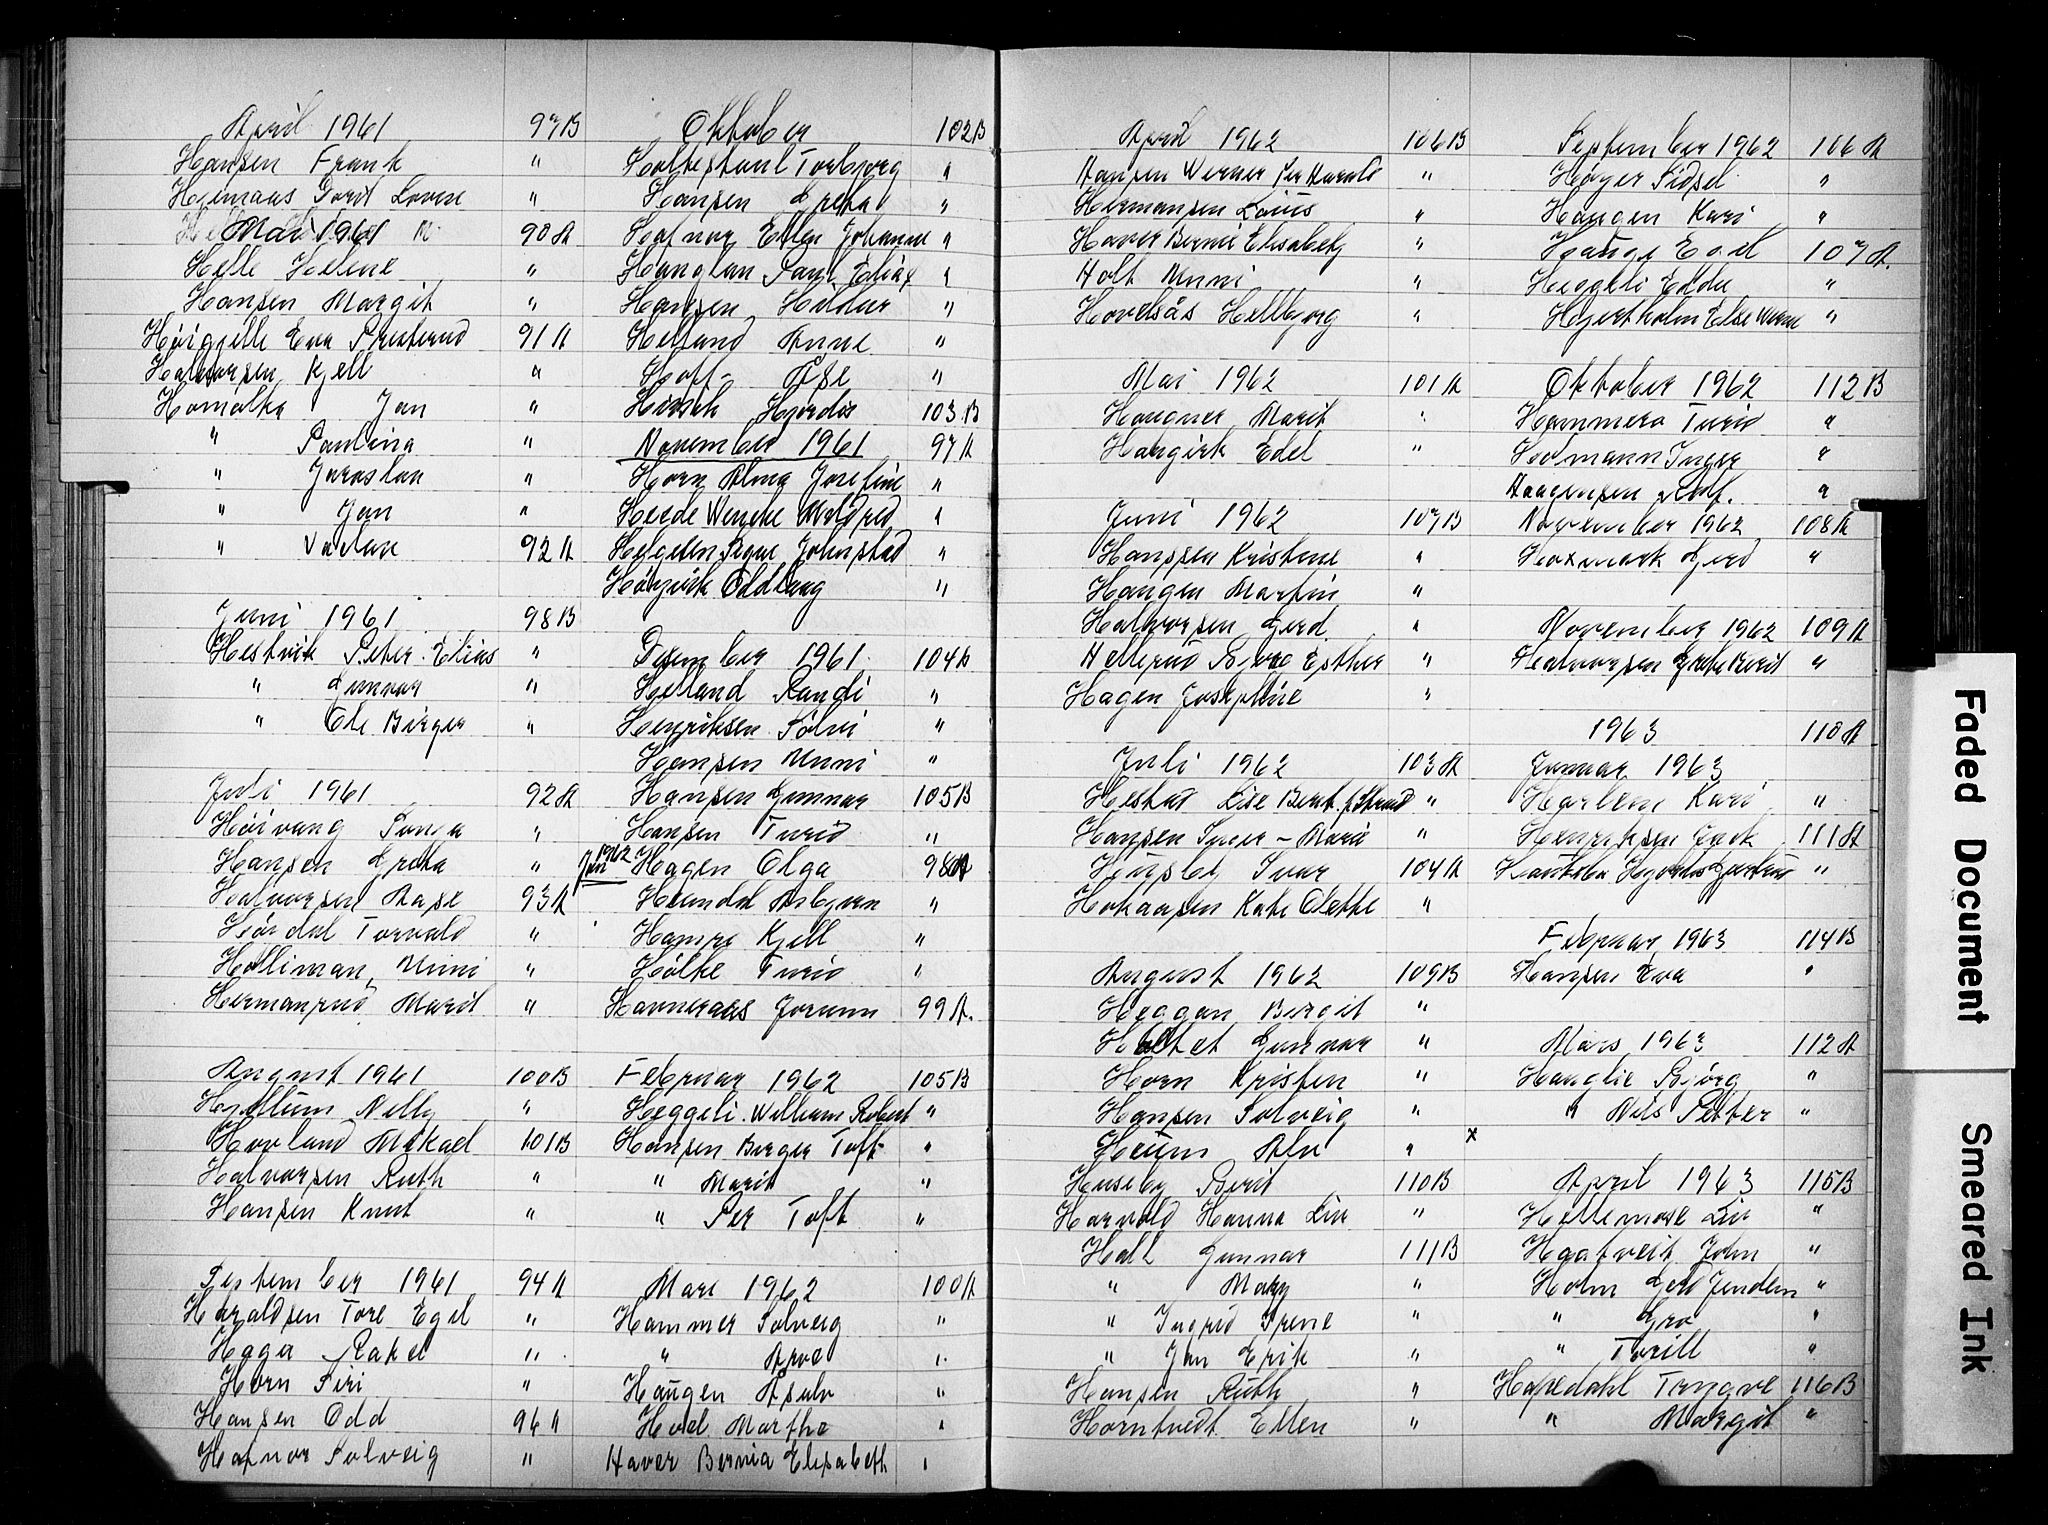 April 1961 97B
Hansen Frank "
Hjemaas Dordi Lovise "
Mai 1961 90A
Helle Helene "
Hansen Margit "
Høigjelle Eva Presterud 91A
Halvorsen, Kjell "
Homolka Jan "
" Paulina "
" Jaroslav "
" Jan "
" Vaclav 92A
Juni 1961 98B
Hestvik Peter Elias "
" Gunnar "
" Ole Birger "
Juli 1961 92A
Høivang Sonja "
Hansen Grete "
Halvorsen Aase 93A
Hørdal Torvald "
Holliman, Unni "
Hermanrud Marit "
August 1961 100B
Hjellum Nelly "
Hovland Mikael 101B
Halvorsen Ruth "
Hansen Knut "
September 1961 94A
Haraldsen Tore Egil "
Haga Rakel "
Horn Siri "
Hansen Odd 96A
Hafnor Solveig "
Oktober 102B
Holtestaul Torbjørg "
Hansen Greta "
Hafnor Ellen Johanne "
Hauglan Paul Elias "
Hansen Hildur "
Helland Anne "
Hoff Åse "
Hirsch Hjørdis 103B
November 1961 97A
Horn Alma Josefine "
Heede Wencke Mildred "
Helgesen Signe Johnstad "
Høgvik Oddlaug "
Desember 1961 104B
Helland Randi "
Henriksen Sølvi "
Hansen Unni "
Hansen Gunnar 105B
Hansen Turid "
Jan 1962 Hagen Olga 98A
Heimdal Asbjørn "
Hamre Kjell "
Hølke Turid "
Havneraas Jorunn 99A.
Februar 1962 105B
Heggeli William Robert "
Hansen Birger Toft "
" Marit "
" Per Toft "
Mars 1962 100A
Hammer Solveig "
" Arve "
Haugen Asulv "
Hoel Marthe "
Haver Bernia Elisabeth "
April 1962 106B
Hansen Werner Per Harald "
Hermansen Louis "
Haver Bernie Elisabeth "
Holt Unni "
Hovelsås Hellbjørg "
Mai 1962 101A
Haugner Marit "
Haugirk Edel "
Juni 1962 107B
Hanssen Kristine "
Haugen Martin "
Halvorsen Gerd "
Hellerud Bjørg Esther "
Hagen Josephine "
Juli 1962 103A
Hestad Lise Berit f. Strand "
Hansen Inger - Marie "
Huseby Ivar 104A
Hokaasen Kate Olette "
August 1962 109B
Heggan Birgit "
Holtet Gunnar "
Horn Kristen "
Hansen Solveig "
Heum Alv " x
Huseby Berit 110B
Harvold Hanna Liv "
Hall Gunnar 111B
" Mary "
" Ingrid Irene "
" Jan Erik "
Hansen Ruth "
Horntvedt Ellen "
September 1962 106A
Høyer Sidsel "
Haugen Kari "
Hauge Egil 107A.
Heggeli Edda "
Hjertholm Else Marie "
Oktober 1962 112B
Hammero Turid "
Hoemann Inger "
Haagensen Rolf. "
November 1962 108A
Hoxmark Gerd "
November 1962 109A
Halvorsen Grete Berit "
1963 110A
Januar 1963
Harlem Kari "
Henriksen Jack 111A
Hauboba Hjørdis Gjertrud "
Februar 1963 114B
Hansen Eva "
Mars 1963 112A
Hauglie Bjørg "
" Nils Petter "
April 1963 115B
Hellemose Liv "
Hogtveit John "
Holm Gerd Jendem "
" Gro "
" Torill "
Haredahl Trygve 116B
" Margit "
Faded Document
Smeared Ink